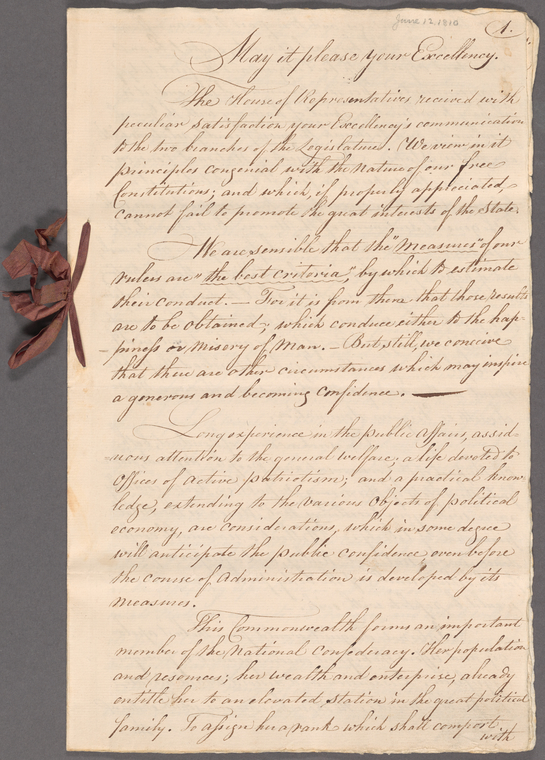 June 12. 1810
1.
May it please your Excellency.
The House of Representatives received with
peculiar satisfaction your Excellency's communication
to the two branches of the Legislature. We view in it
principles congenial with the nature of our free
Constitutions; and which, if properly appreciated,
cannot fail to promote the great interests of the State.
We are sensible that the "measures" of our
rulers are "the best criteria", by which to estimate
their conduct. — For it is from them that those results
are to be obtained, which conduce either to the hap-
piness or misery of Man. — But still, we conceive
that there are other circumstances which may inspire
a generous and becoming confidence. —
Long experience in the public affairs, assid-
uous attention to the general welfare, a life devoted to
offices of active patriotism; and a practical know-
ledge, extending to the various objects of political
economy, are considerations, which in some degree
will anticipate the public confidence even before
the course of Administration is developed by its
measures.
This Commonwealth forms an important
member of the National Confederacy. Her population
and resources; her wealth and enterprise, already
entitle her to an elevated station in the great political
family. To assign her a rank which shall comport
with